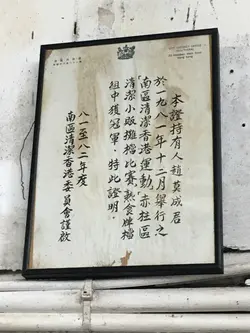 本證持有人趙莫成居
於一九八一年十二月舉行之
「南區清潔香港運動」赤柱區
清潔小販攤檔比賽，熟食牌檔
組中獲冠軍，特此證明。
八一至八二年度
南區清潔香港委員會謹啟